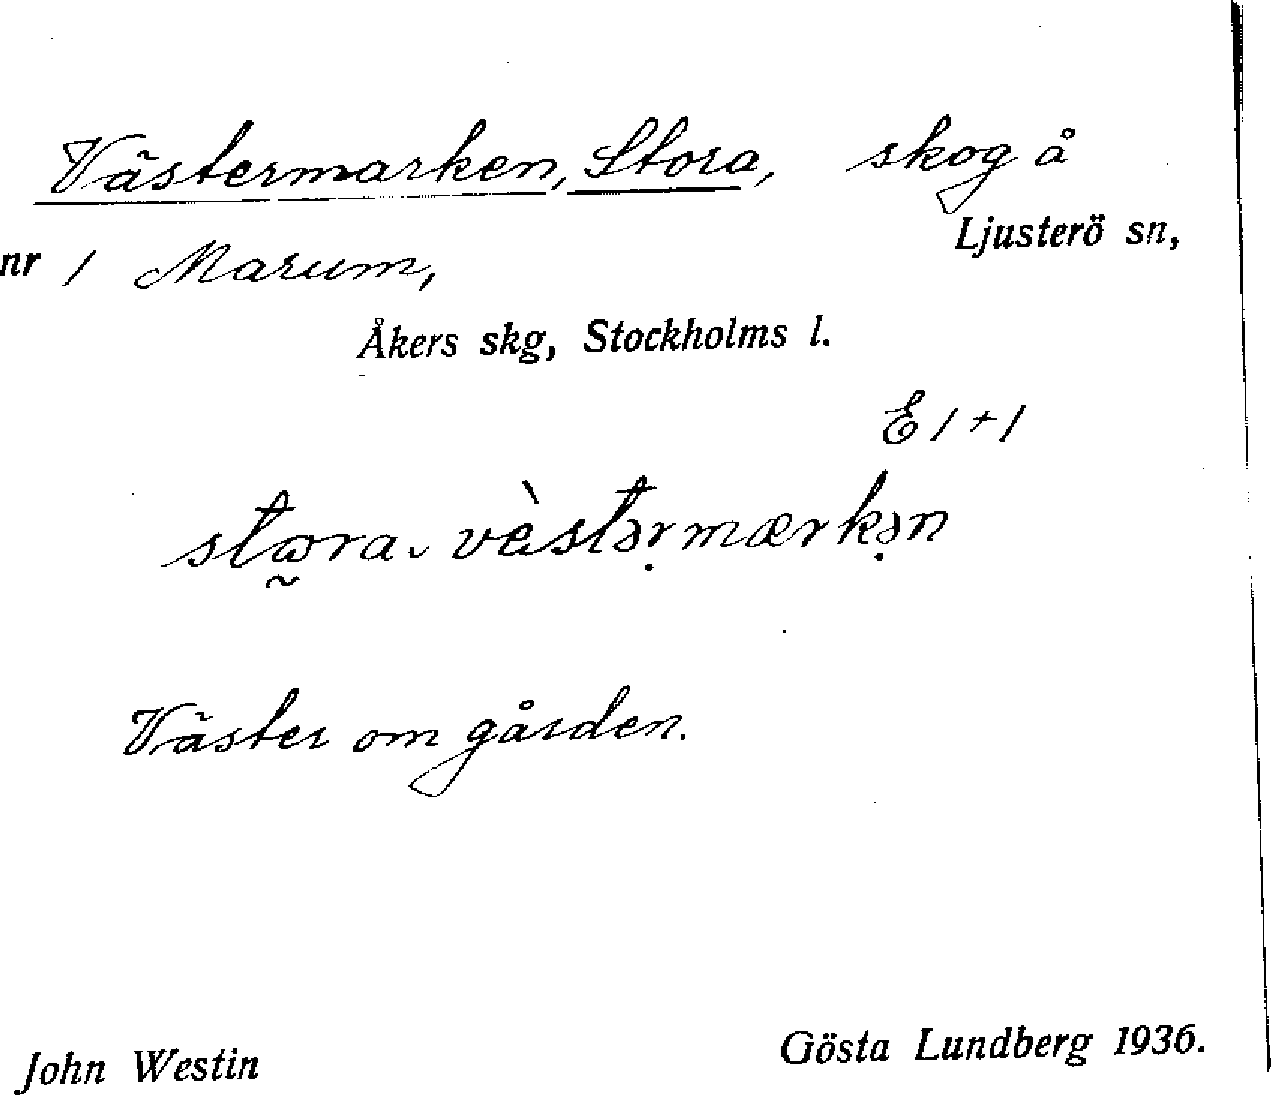 Västermarken, Stora, skog å
nr 1 Marum, Ljusterö sn,
Åkers skg, Stockholms l.
E 1+1
Väster om gården.
John Westin Gösta Lundberg 1936.